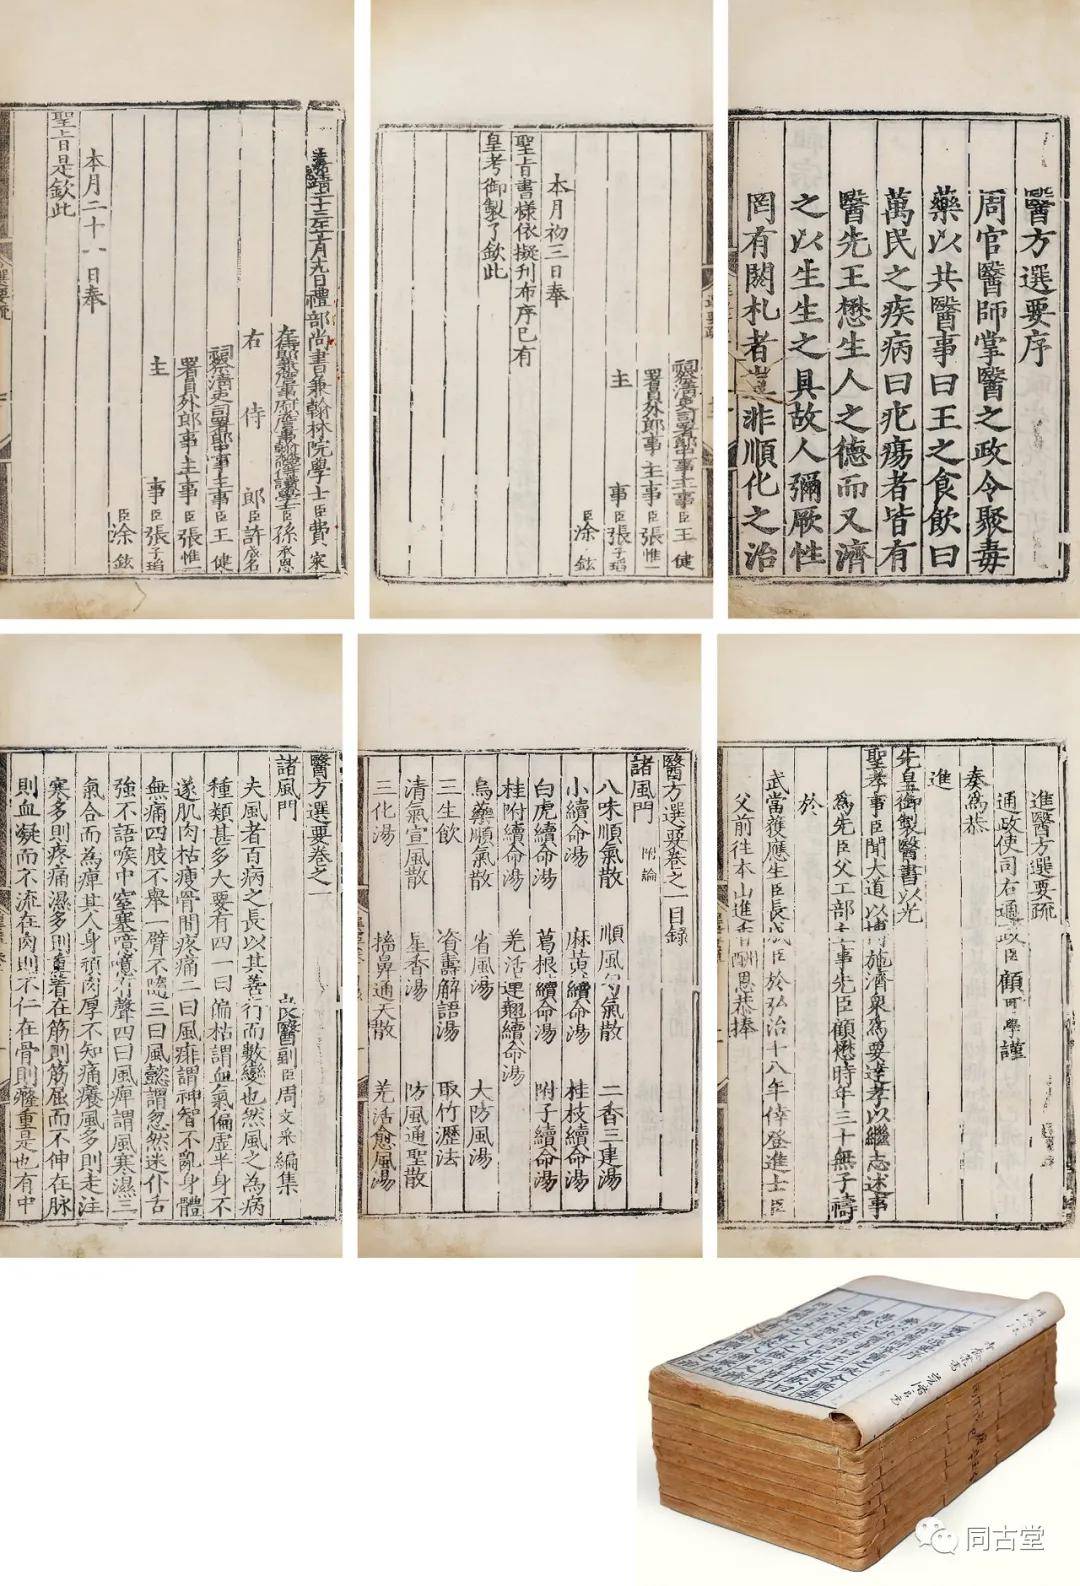 嘉靖二十三年十月九日禮部尚書兼翰林院學士臣費寀
右侍郎臣許成名
祠祭清吏司署郎中事主事臣王健
署員外郎事主事臣張惟一
主事臣張子瑫
臣涂鉉
本月二十八日奉
聖旨是欽此
祠祭清吏司署郎中事主事臣王健
署員外郎事主事臣張惟一
主事臣張子瑫
臣涂鉉
本月初三日奉
聖旨書樣依擬刊布序已有
皇考御製了欽此
醫方選要序
周官醫師掌醫之政令聚毒
藥以共醫事曰王之食飲曰
萬民之疾病曰疕瘍者皆有
醫先王懋生人之德而又濟
之以生生之具故人彌厥性
罔有閼札者豈非順化之治
醫方選要卷之一
諸風門
良醫副臣周文采編集
夫風者百病之長以其善行而數變也然風之為病
種類甚多大要有四一曰偏枯謂血氣偏虛半身不
遂肌肉枯瘦骨間疼痛二曰風痱謂神智不亂身體
無痛四肢不舉一臂不隨三曰風懿謂忽然迷仆舌
強不語喉中窒塞噫噫有聲四曰風痺謂風寒濕三
氣合而為痺其人身頑肉厚不知痛癢風多則走注
寒多則疼痛濕多則重著在筋則筋屈而不伸在脉
則血凝而不流在肉則不仁在骨則癃重是也有中
醫方選要卷之一目錄
諸風門 附論
八味順氣散 順風勻氣散 二香三建湯
小續命湯 麻黃續命湯 桂枝續命湯
白虎續命湯 葛根續命湯 附子續命湯
桂附續命湯 羌活連翹續命湯
烏藥順氣散 省風湯 大防風湯
三生飲 資壽解語湯 取竹瀝法
清氣宣風散 星香湯 防風通聖散
三化湯 搐鼻通天散 羌活愈風湯
進醫方選要疏
通政使司右通政臣顧可學謹
奏為恭
進
先皇御製醫書以光
聖孝事臣聞大道以博施濟衆為要達孝以繼志述事
為先臣父工部主事先臣顧懋時年三十無子禱
於
武當獲應生臣長成臣於弘治十八年倖登進士臣
父前往本山進香酬恩恭捧
同古堂